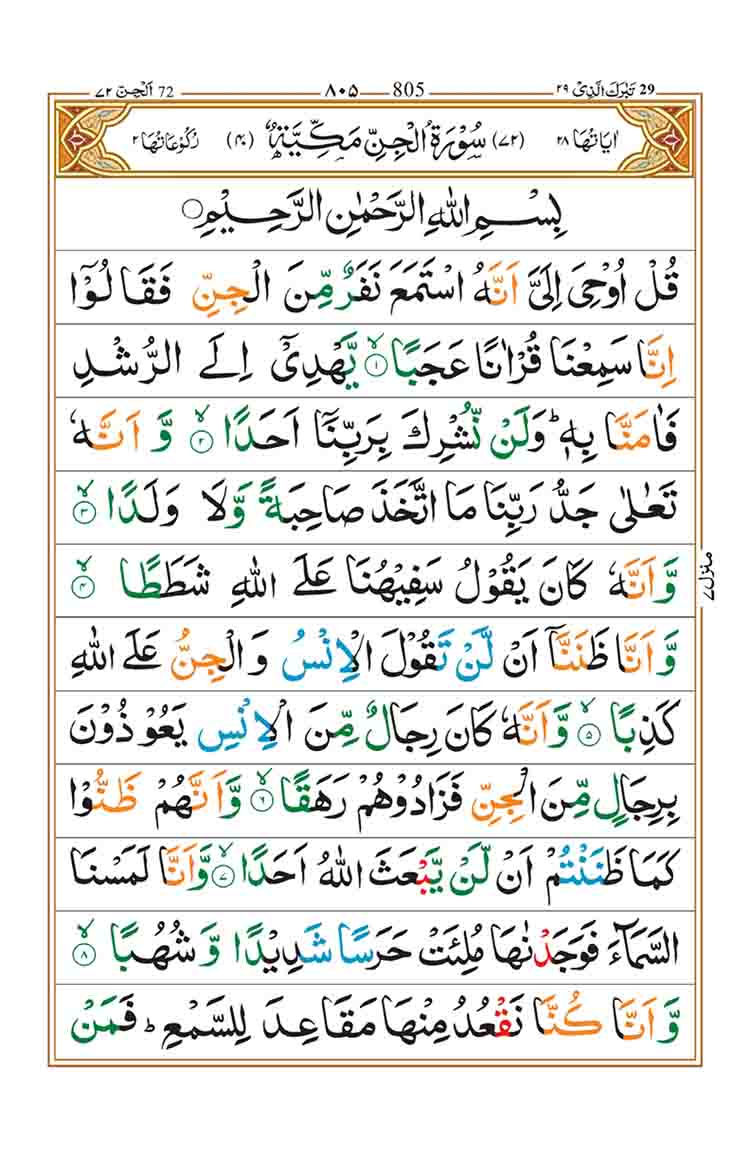 29 تَبٰرَكَ الَّذِیْ ۲۹ 805 ۸۰۵ 72 اَلْجِنّ ۷۲
اٰیَاتُهَا ۲۸ (۷۲) سُوْرَةُ الْجِنِّ مَكِّیَّةٌ (۴۰) رُكُوْعَاتُهَا ۲
بِسْمِ اللّٰهِ الرَّحْمٰنِ الرَّحِیْمِ
قُلْ اُوْحِیَ اِلَیَّ اَنَّهُ اسْتَمَعَ نَفَرٌ مِّنَ الْجِنِّ فَقَالُوْۤا
اِنَّا سَمِعْنَا قُرْاٰنًا عَجَبًا ۙ‏﴿۱﴾ یَّهْدِیْۤ اِلَی الرُّشْدِ
فَاٰمَنَّا بِهٖ ؕ وَلَنْ نُّشْرِكَ بِرَبِّنَاۤ اَحَدًا ۙ‏﴿۲﴾ وَّاَنَّهٗ
تَعٰلٰی جَدُّ رَبِّنَا مَا اتَّخَذَ صَاحِبَةً وَّلَا وَلَدًا ۙ‏﴿۳﴾
وَّاَنَّهٗ كَانَ یَقُوْلُ سَفِیْهُنَا عَلَی اللّٰهِ شَطَطًا ۙ‏﴿۴﴾
وَّاَنَّا ظَنَنَّاۤ اَنْ لَّنْ تَقُوْلَ الْاِنْسُ وَالْجِنُّ عَلَی اللّٰهِ
كَذِبًا ۙ‏﴿۵﴾ وَّاَنَّهٗ كَانَ رِجَالٌ مِّنَ الْاِنْسِ یَعُوْذُوْنَ
بِرِجَالٍ مِّنَ الْجِنِّ فَزَادُوْهُمْ رَهَقًا ۙ‏﴿۶﴾ وَّاَنَّهُمْ ظَنُّوْا
كَمَا ظَنَنْتُمْ اَنْ لَّنْ یَّبْعَثَ اللّٰهُ اَحَدًا ۙ‏﴿۷﴾ وَّاَنَّا لَمَسْنَا
السَّمَآءَ فَوَجَدْنٰهَا مُلِئَتْ حَرَسًا شَدِیْدًا وَّشُهُبًا ۙ‏﴿۸﴾
وَّاَنَّا كُنَّا نَقْعُدُ مِنْهَا مَقَاعِدَ لِلسَّمْعِ ؕ فَمَنْ
منزل ۷